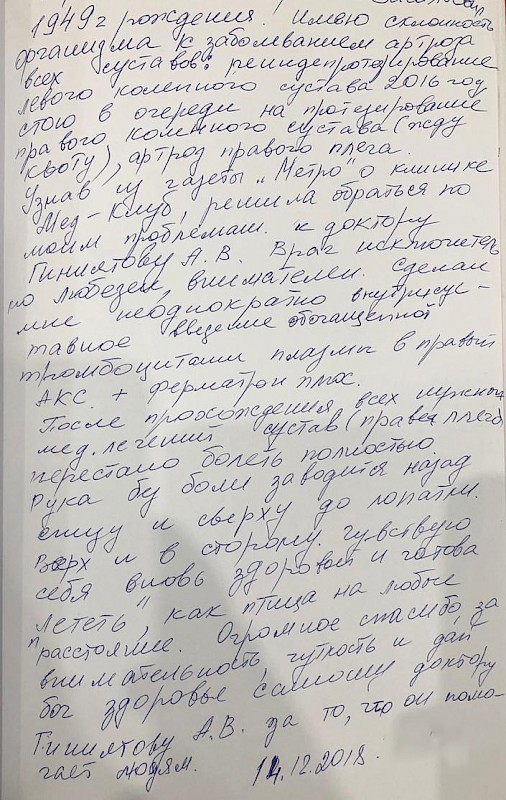 1949г рождения. Имею склонность
организма к заболеванием артроза
всех суставов: реэндепротезирование
левого коленного сустава 2016 году
стою в очереди на протезирование
правого коленного сустава (жду
квоту), артроз правого плеча.
Узнав из газеты „Метро" о клинике
Мед-Клуб, решила обраться по
моим проблемам к доктору
Гиниятову А.В. Врач исключитель
но любезен, внимателен. Сделал
мне неоднократно внутрисус-
тавное введение обогащенной
тромбоцитами плазмы в правый
АКС + ферматрон плюс.
После прохождения всех нужных
мед. лечений сустав (правого плеча)
перестало болеть полностью.
Рука без боли заводится назад
снизу и сверху до лопатки.
Вверх и в сторону. Чувствую
себя вновь здоровой и готова
"лететь", как птица на любые
расстояние. Огромное спасибо за
внимательность, чуткость и дай
бог здоровье самому доктору
Гиниятову А.В. за то, что он помо-
гает людям. 14.12.2018